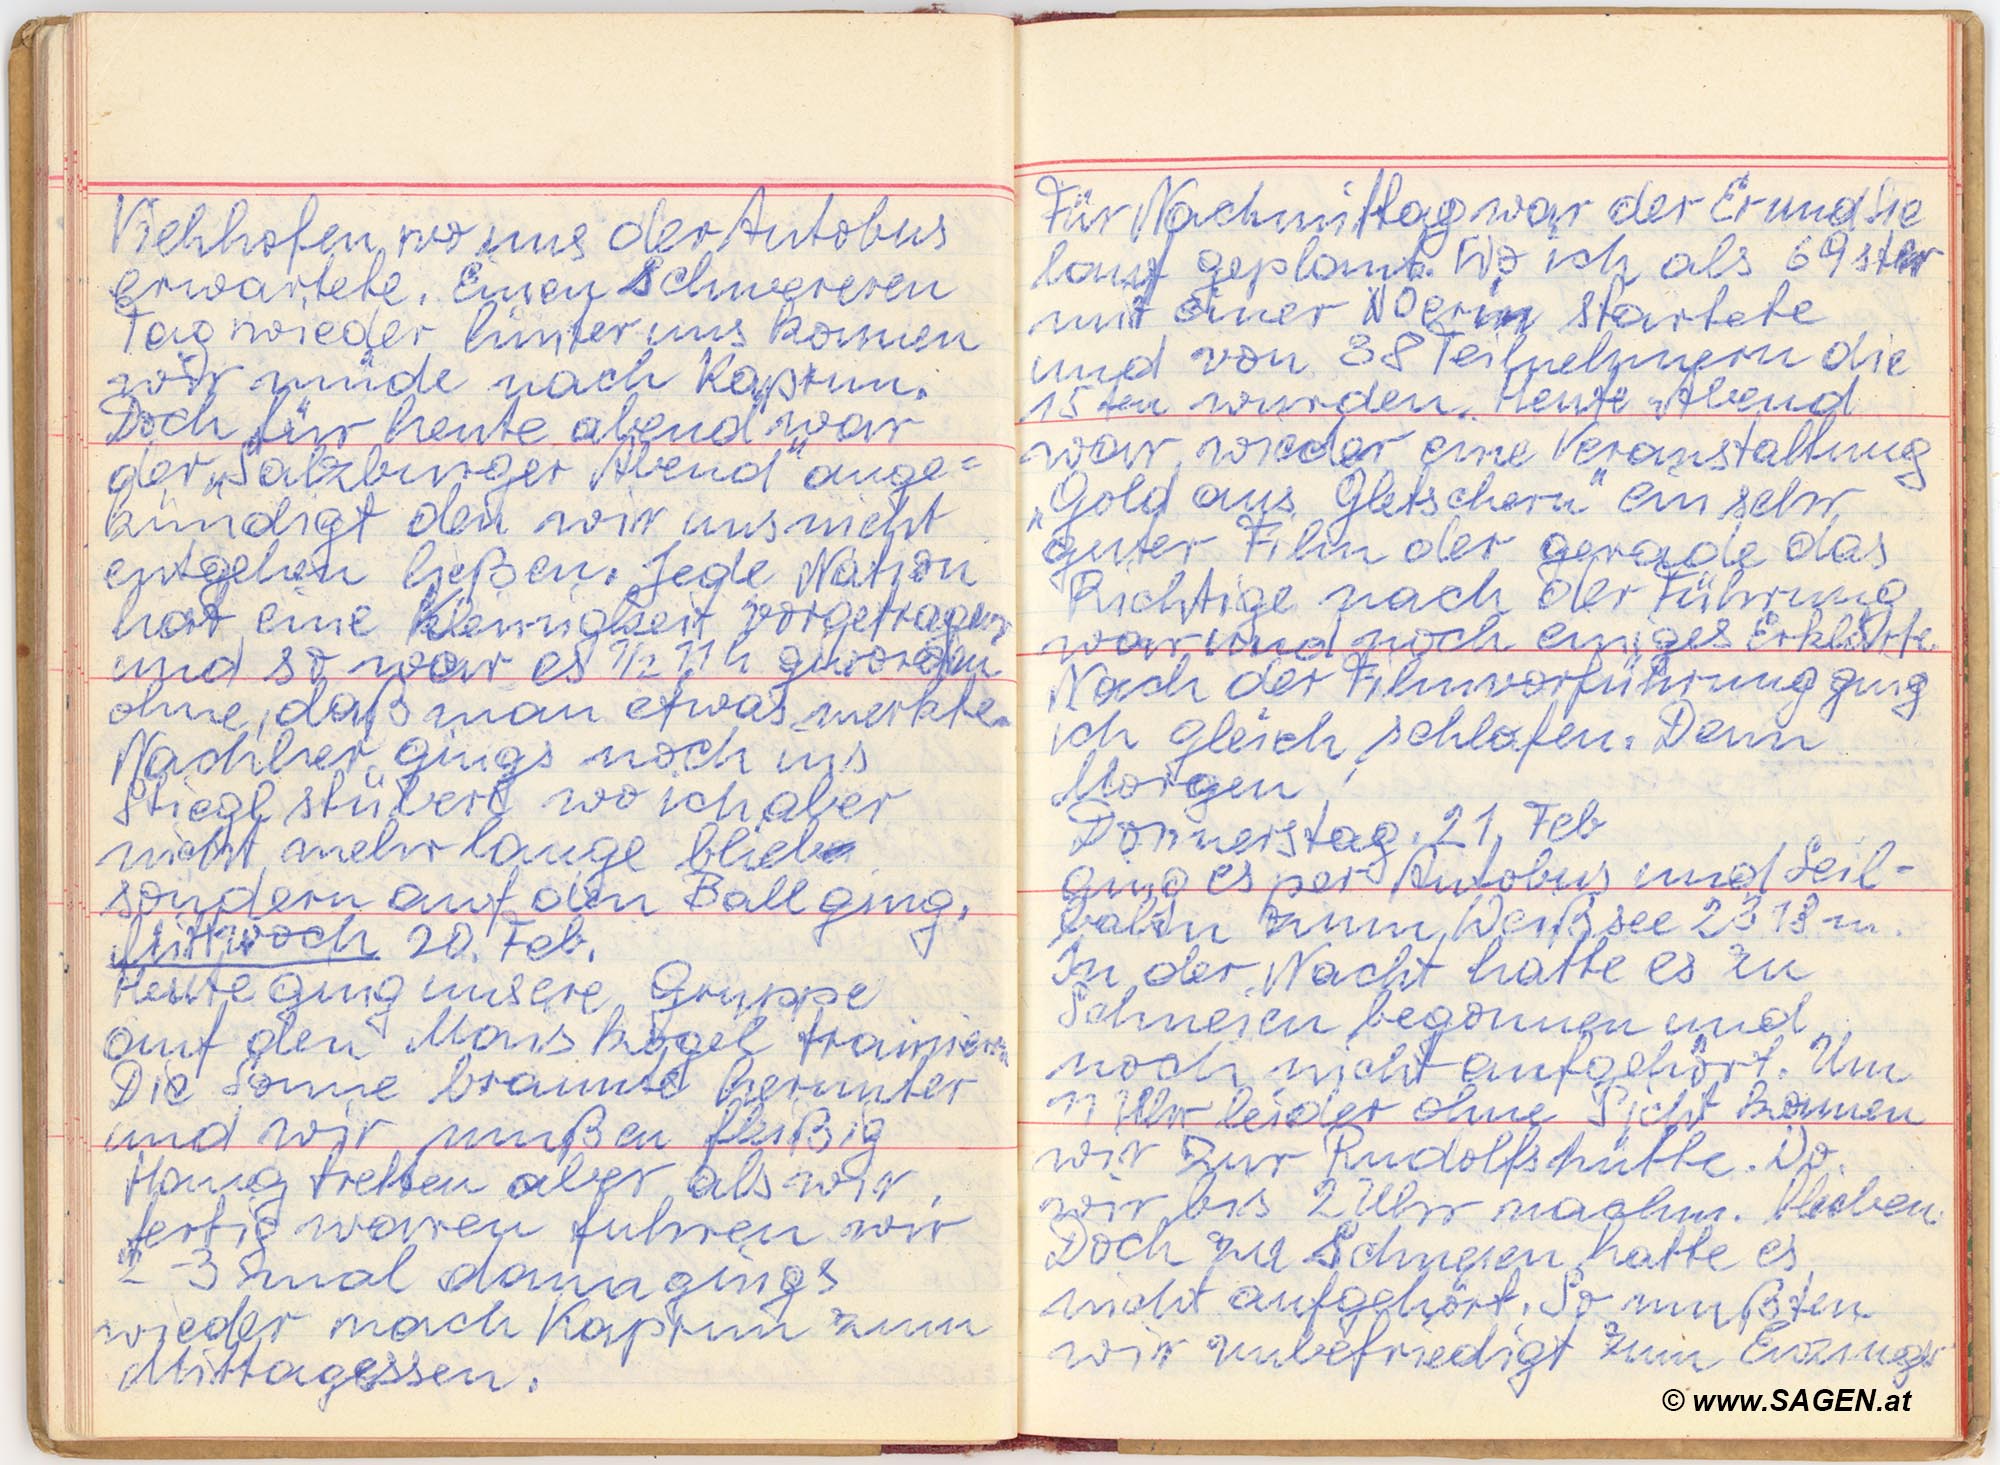 Viehhofen, wo uns der Autobus
erwartete. Einen Schwereren
Tag wieder hinter uns kamen
wir müde nach Kaprun.
Doch für heute abend war
der „Salzburger Abend" ange=
kündigt den wir uns nicht
entgehen ließen. Jede Nation
hat eine Kleinigkeit vorgetragen
und so war es 1/2 11 h geworden
ohne, daß man etwas merkte.
Nachher gings noch ins
Stiegl stüberl wo ich aber
nicht mehr lange blieb
sondern auf den Ball ging.
Mittwoch 20. Feb.
Heute ging unsere Gruppe
auf den Maiskogel trainieren
Die Sonne brannte herunter
und wir mußen fleißig
Hang tretten aber als wir
fertig waren fuhren wir
2-3 mal dann gings
wieder nach Kaprun zum
Mittagessen.
Für Nachmittag war der Er und Sie
lauf geplant. Wo ich als 69ster
mit einer NÖerin startete
und von 88 Teilnehmern die
15ten wurden. Heute Abend
war wieder eine Veranstaltung
„Gold aus Gletschern" ein sehr
guter Film der gerade das
Richtige nach der Führung
war und noch einiges Erklärte.
Nach der Filmvorführung ging
ich gleich schlafen. Denn
Morgen
Donnerstag. 21. Feb
ging es per Autobus und Seil-
bahn zum Weißsee 2313 m.
In der Nacht hatte es zu
Schneien begonnen und
noch nicht aufgehört. Um
11 Uhr leider ohne Sicht kamen
wir zur Rudolfshütte. Do.
wir bis 2 Uhr nachm. blieben.
Doch zu Schneien hatte es
nicht aufgehört. So mußten
wir unbefriedigt zum Enzinger
© www.SAGEN.at